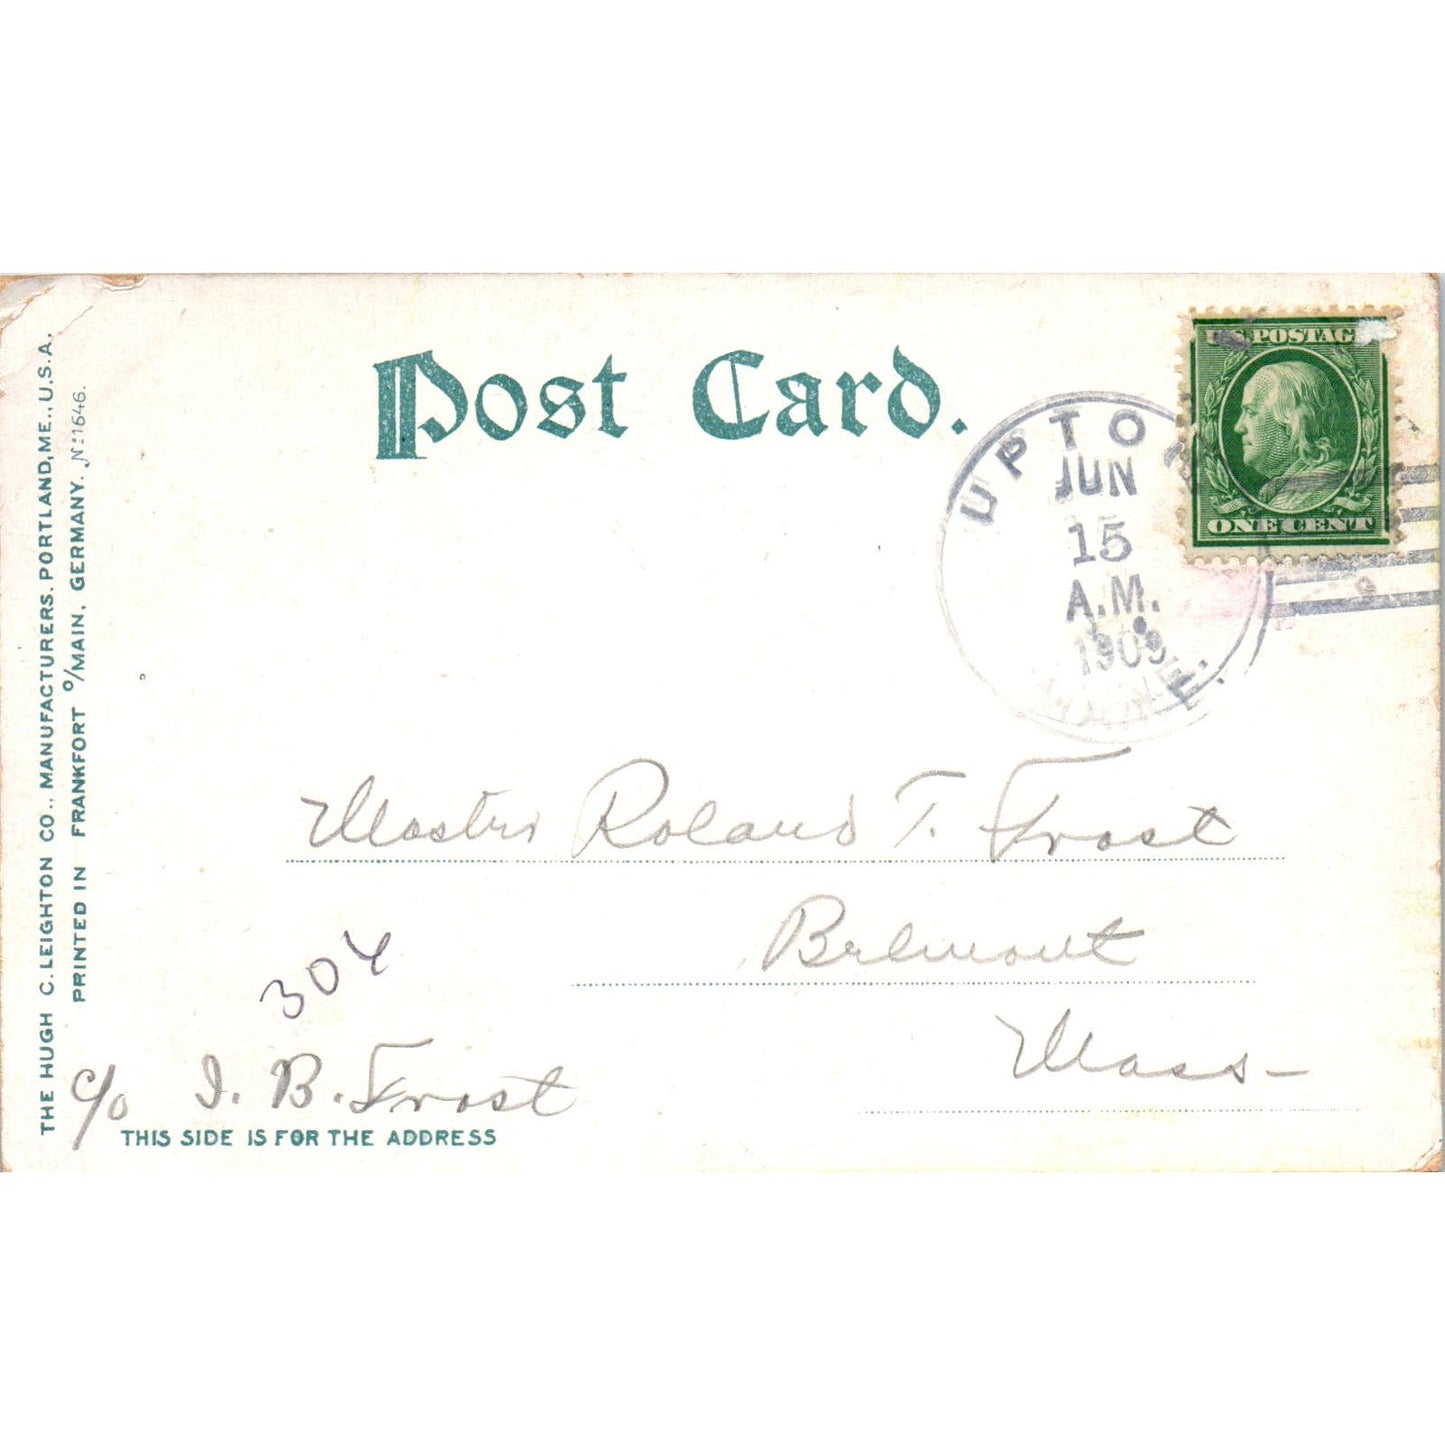 THE HUGH C. LEIGHTON CO., MANUFACTURERS, PORTLAND, ME., U.S.A.
PRINTED IN FRANKFORT O/MAIN, GERMANY. No 1646.
Post Card.
U.S. POSTAGE
ONE CENT
UPTON
JUN
15
A.M.
1909
MAINE.
Master Roland T. Frost
Belmont
Mass-
304
c/o I. B. Frost
THIS SIDE IS FOR THE ADDRESS